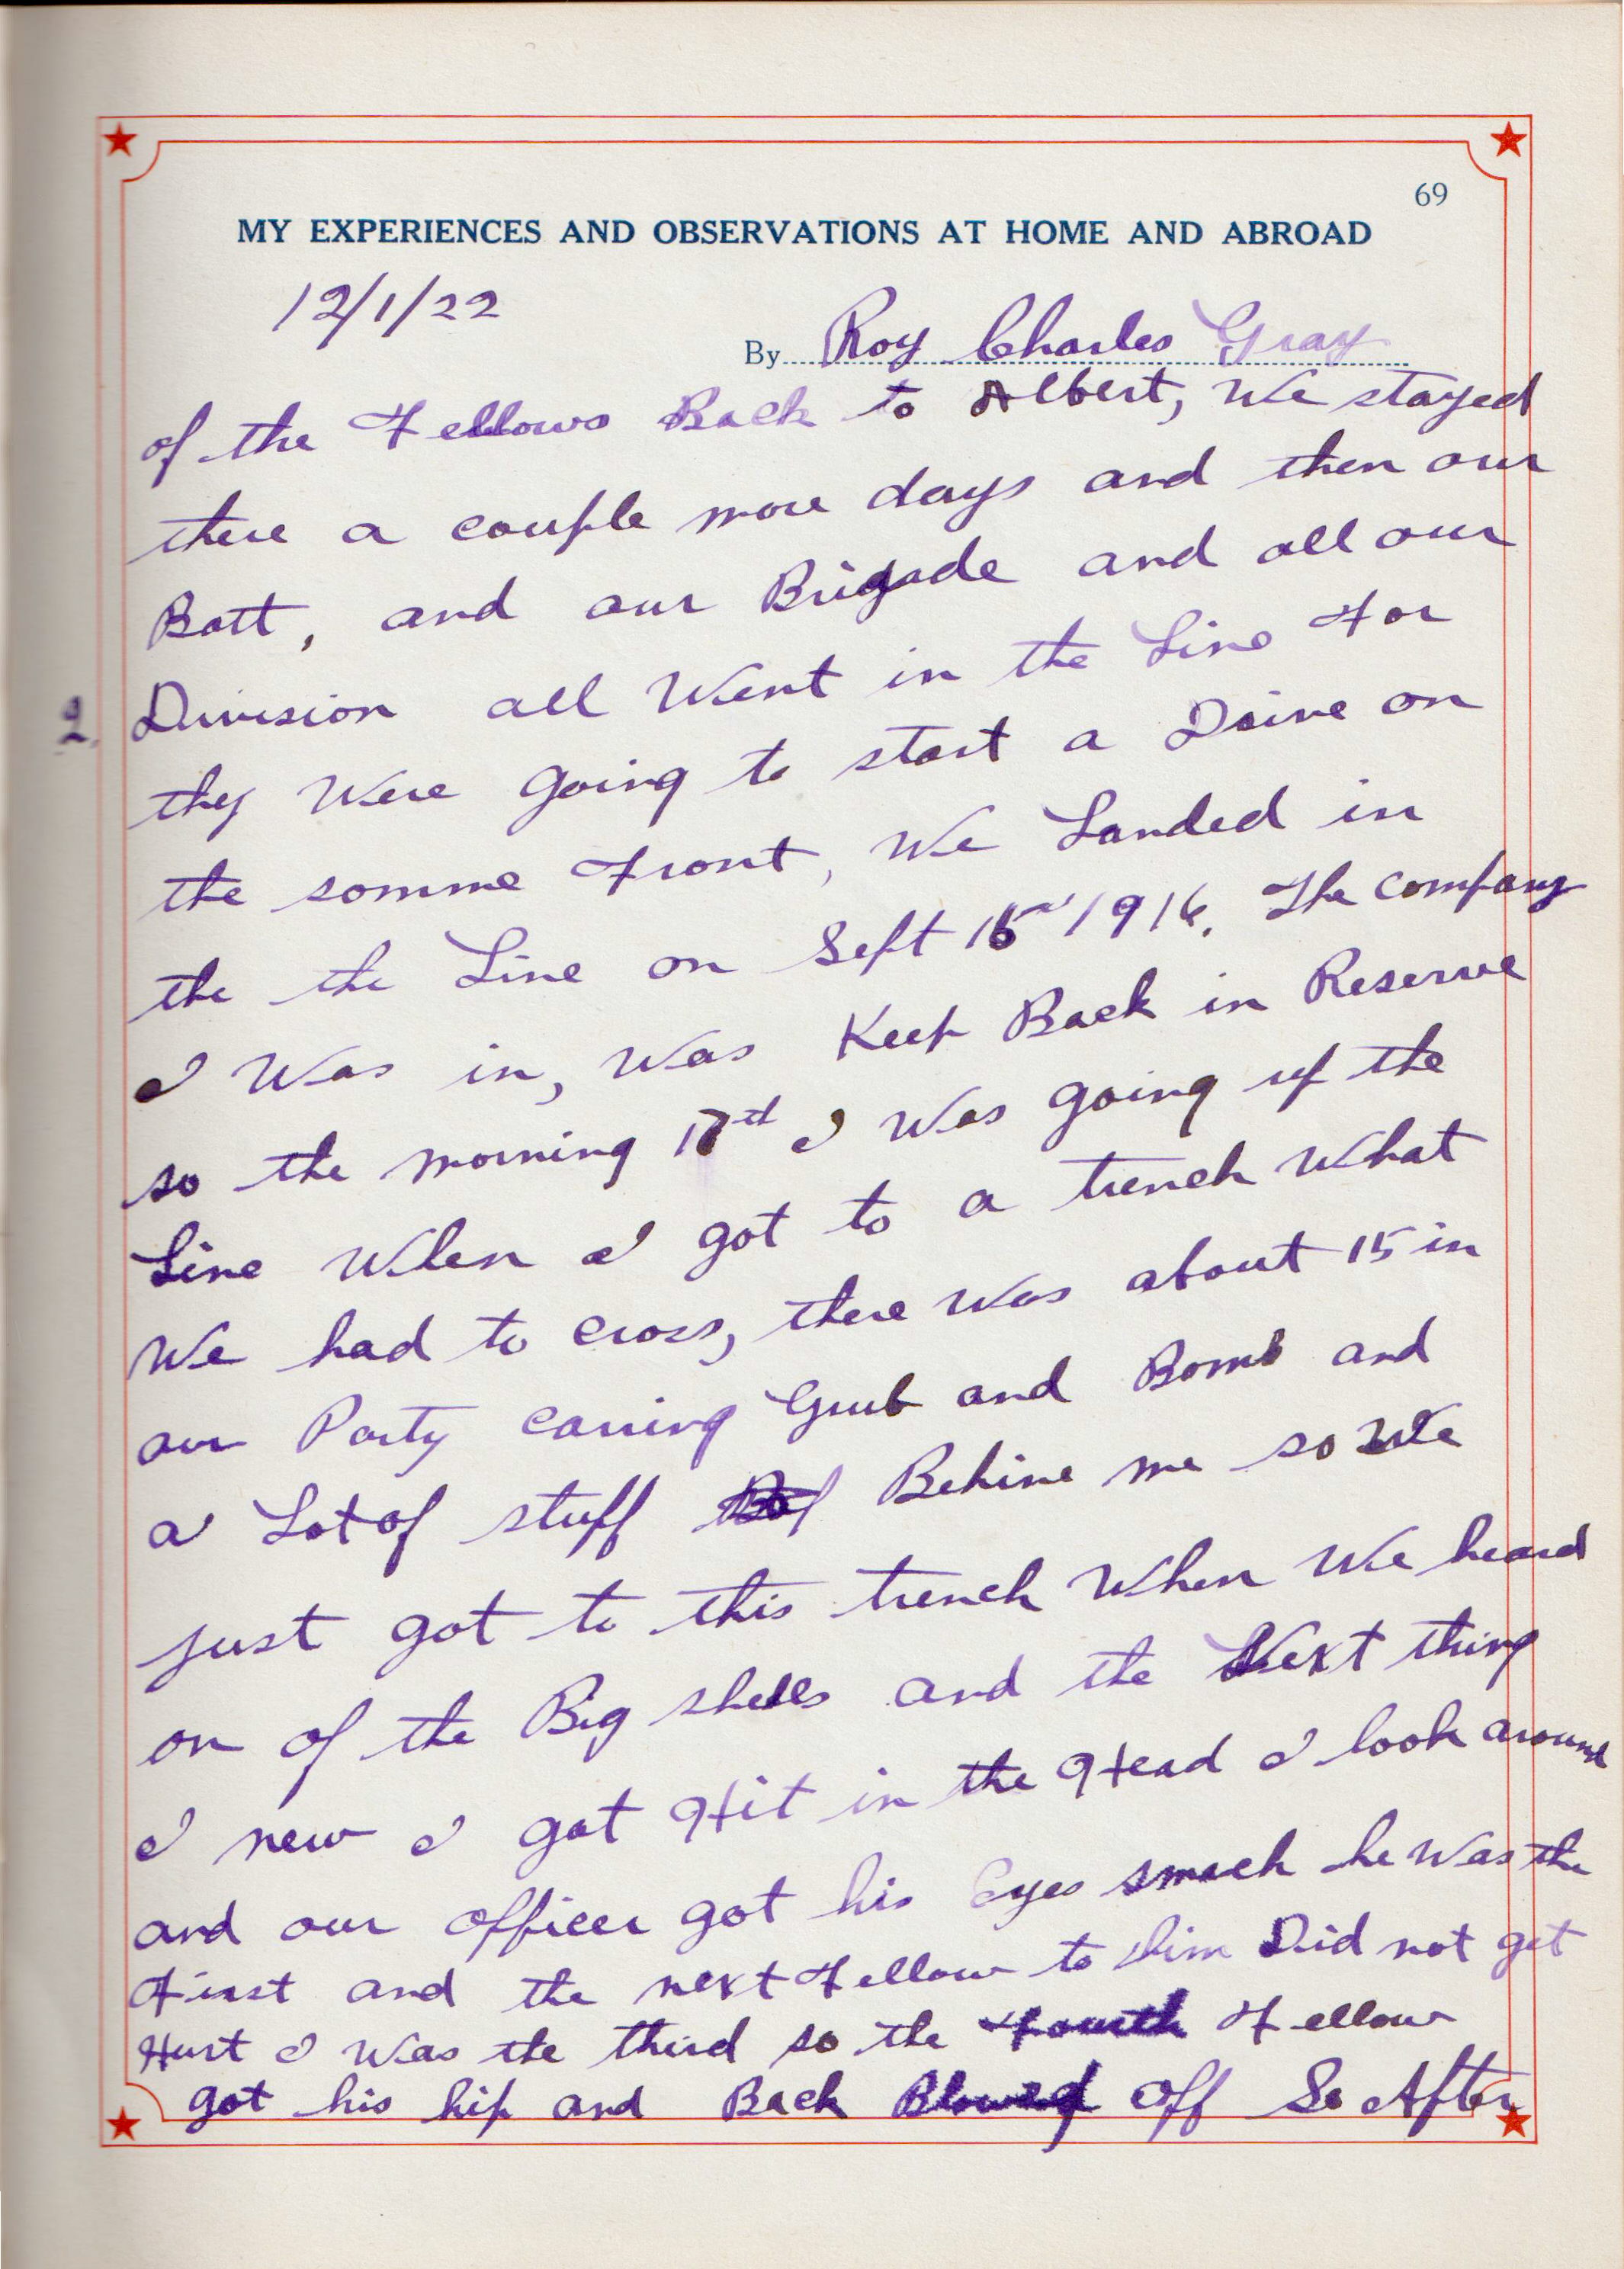 69
MY EXPERIENCES AND OBSERVATIONS AT HOME AND ABROAD
12/1/22
By Roy Charles Gray
of the Fellows Back to Albert, We stayed
there a couple more days and then our
Batt, and our Brigade and all our
2. Division all Went in the Line For
they Were going to start a Drive on
the somme Front, We Landed in
the the Line on Sept 15 1916. The Company
I Was in, Was Keep Back in Reserve
so the morning 17th I Was going up the
Line When I got to a trench What
We had to cross, there Was about 15 in
our Party carring Grub and Bomb and
a Lot of stuff Behine me so We
just got to this trench When We heard
on of the Big shells and the Next thing
I new I got Hit in the Head I look around
and our officer got his Eyes smach he Was the
First and the next Fellow to him Did not get
Hurt I Was the third so the Fourth Fellow
got his hip and Back Blowed off So After